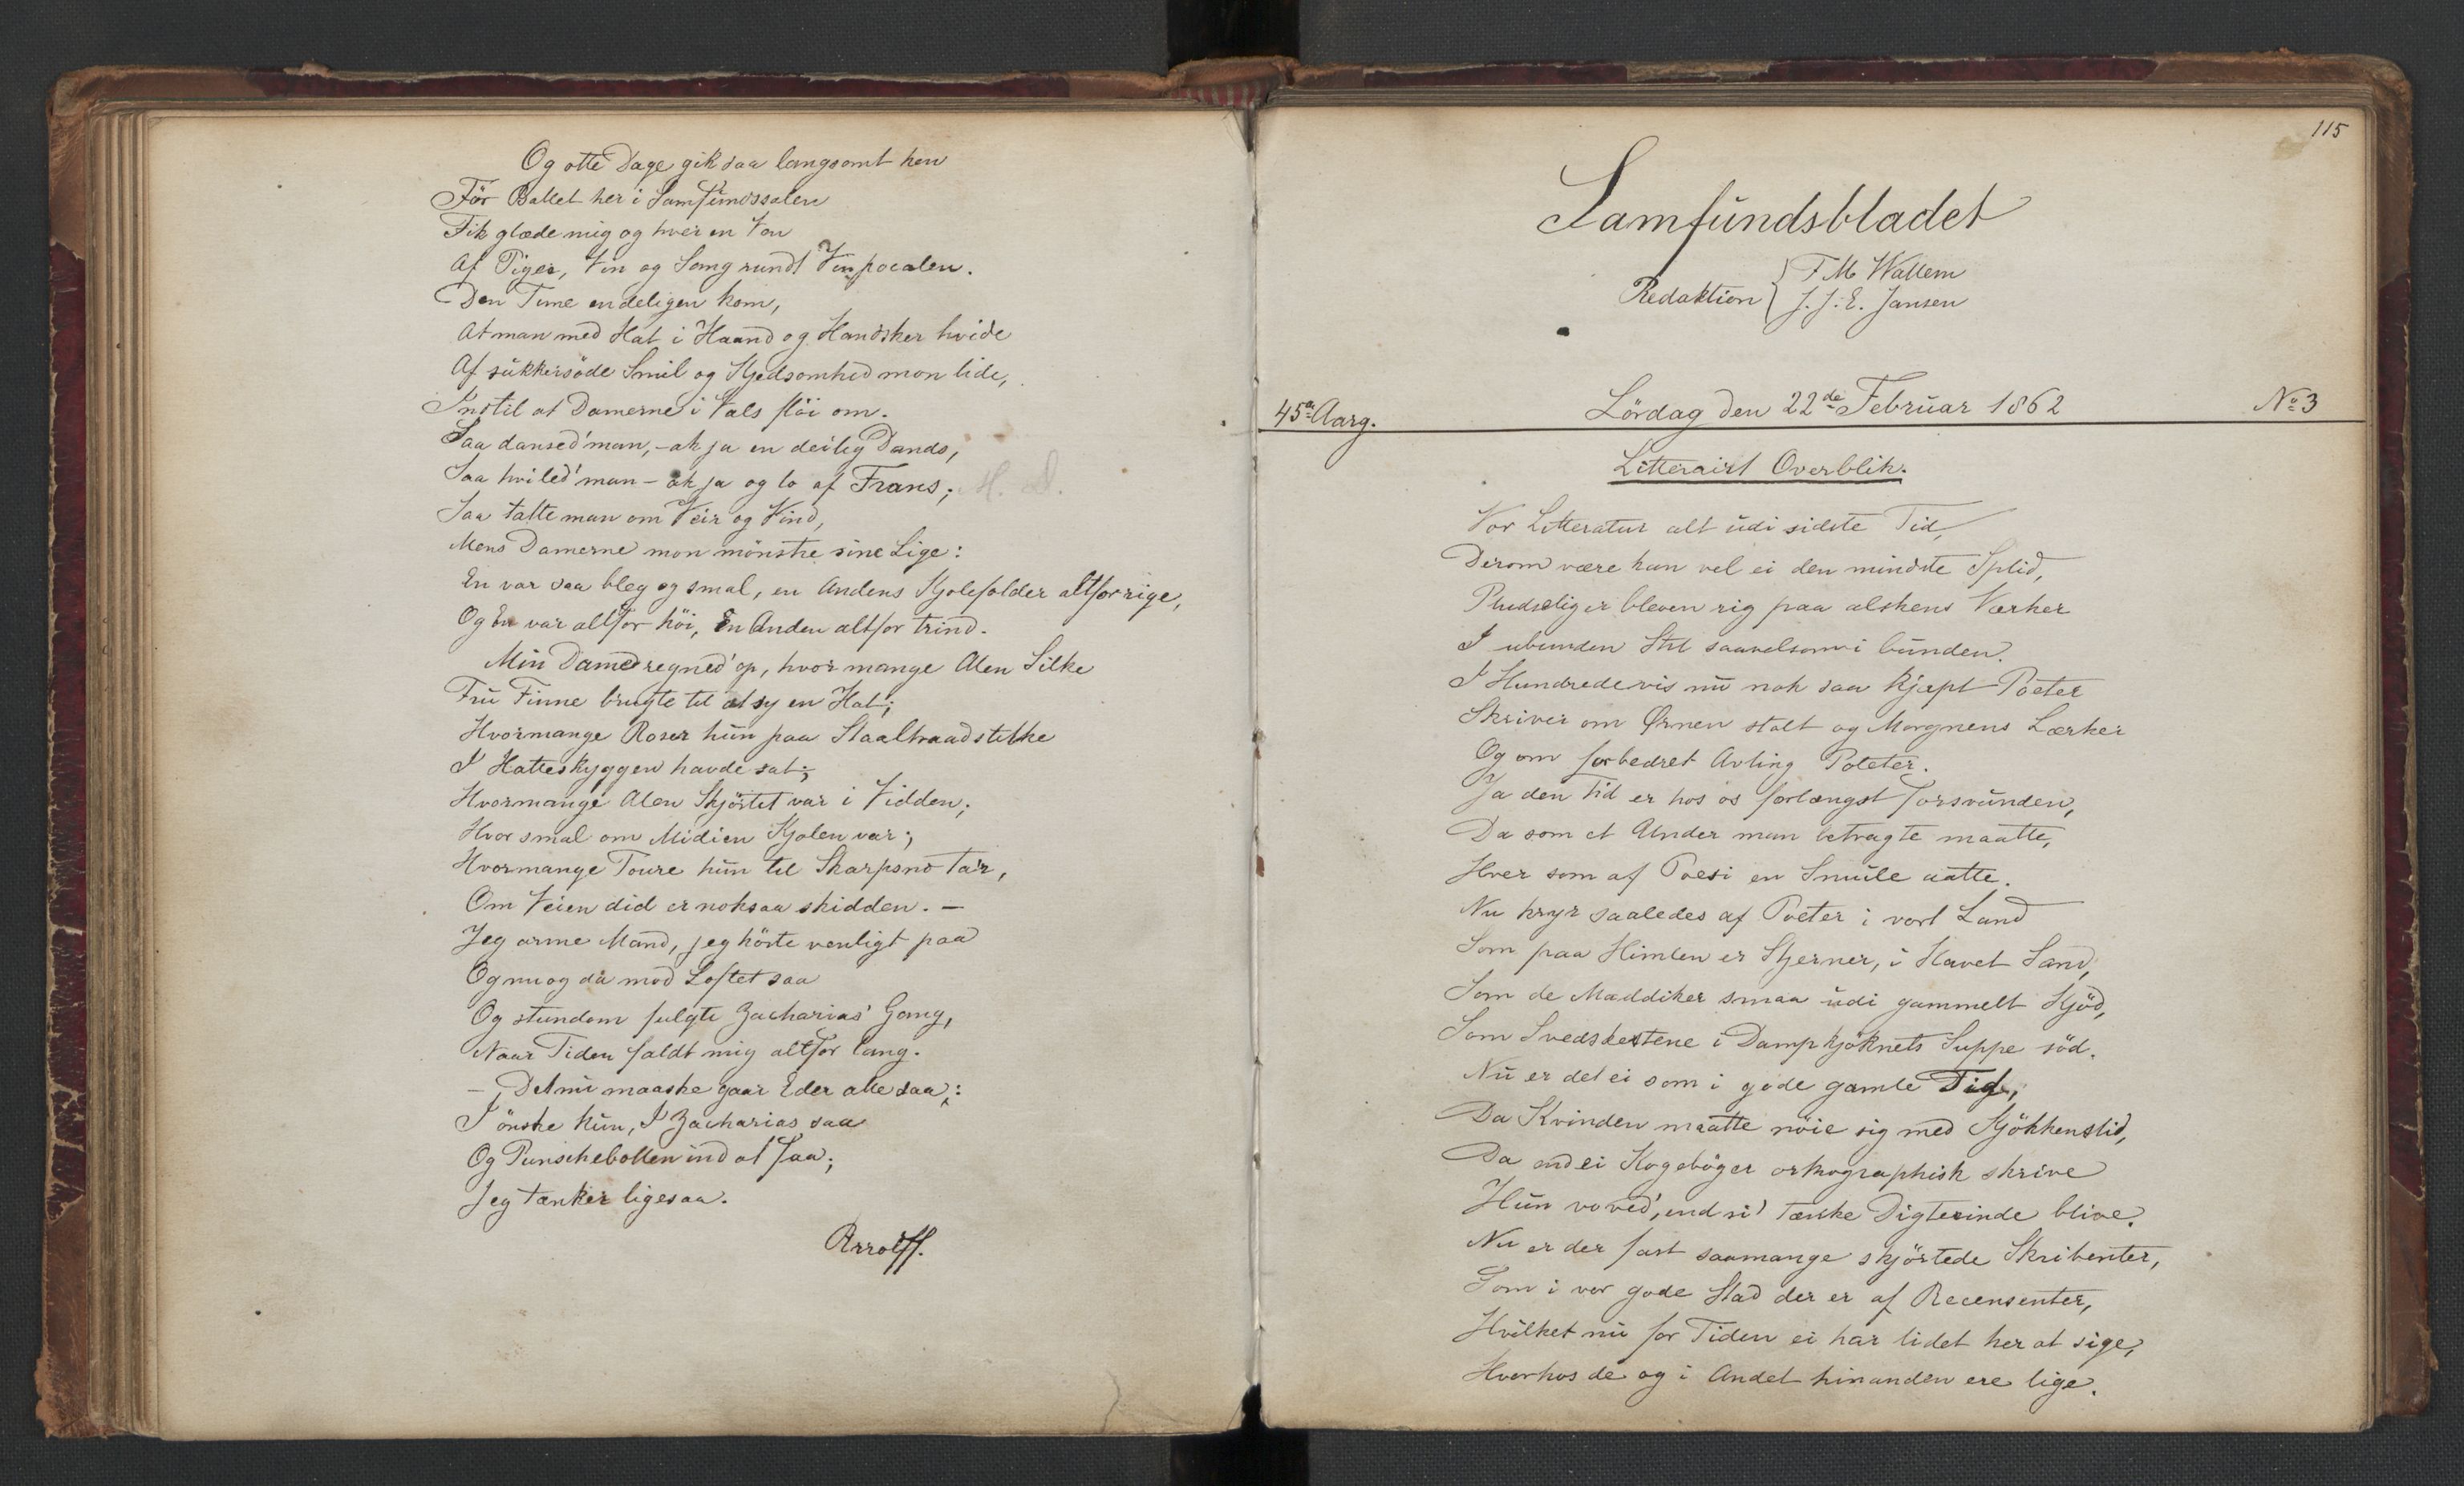 Og otte Dage gik saa langsomt hen
Før Ballet her i Samfundssalen
Fik glæde mig og hver en Ven
Af Piger, Vin og Sang rundt Vinpocalen.
Den Time endeligen kom,
At man med Hat i Haand og Handsker hvide
Af sukkersøde Smil og Kjedsomhed mon lide,
Indtil at Damerne i Vals fløi om.
Saa dansed' man, - ak ja en deilig Dands,
Saa hviled' man - ak ja og lo af Frans;
Saa talte man om Veir og Vind,
Mens Damerne mon mønstre sine Lige:
En var saa bleg og smal, en Andens Kjolefolder altfor rige,
Og En var altfor höi, En Anden altfor trind.
Min Dame regned' op, hvor mange Alen Silke
Fru Finne brugte til at sy en Hat;
Hvormange Roser hun paa Staaltraadstilke
I Hatteskyggen havde sat;
Hvormange Alen Skjørtet var i Vidden;
Hvor smal om Midien Kjolen var;
Hvormange Toure hun til Skarpsno ta'r,
Om Veien did er noksaa skidden. -
Jeg arme Mand, jeg hörte venligt paa
Og nu og da mod Loftet saa
Og stundom fulgte Zacharias' Gang,
Naar Tiden faldt mig altfor lang.
- Det nu maaske gaar Eder alle saa;:
I önske kun, I Zacharias saa
Og Punschebollen ind at faa;
Jeg tænker ligesaa.
Rrrolff.
115
Samfundsbladet
Redaktion { F M Wallem
J. J. E. Jansen
45de Aarg. Lördag den 22de Februar 1862 No 3
Litterairt Overblik.
Vor Litteratur alt udi sidste Tid,
Derom være kan vel ei den mindste Splid,
Pludselig er bleven rig paa alskens Værker
I ubunden Stil saavelsom i bunden.
I Hundredevis nu nok saa kjæpt Poeter
Skriver om Ørnen stolt og Morgnens Lærker
Og om forbedret Avling Poteter.
Ja den Tid er hos os forlængst forsvunden,
Da som et Under man betragte maatte,
Hver som af Poesi en Smule aatte.
Nu kryr saaledes af Poeter i vort Land
Som paa Himlen er Stjerner, i Havet Sand,
Som de Maddiker smaa udi gammelt Kjød,
Som Svedskestene i Dampkjøknets Suppe sød.
Nu er det ei som i gode gamle Tid,
Da Kvinden maatte nöie sig med Kjøkkenslid,
Da end ei Kogebøger orthographisk skrive
Hun voved', end si' tænke Digterinde blive.
Nu er der fast saamange skjörtede Skribenter,
Som i vor gode Stad der er af Recensenter,
Hvilket nu for Tiden ei har lidet her at sige,
Hvorhos de og i Andet hinanden ere lige.